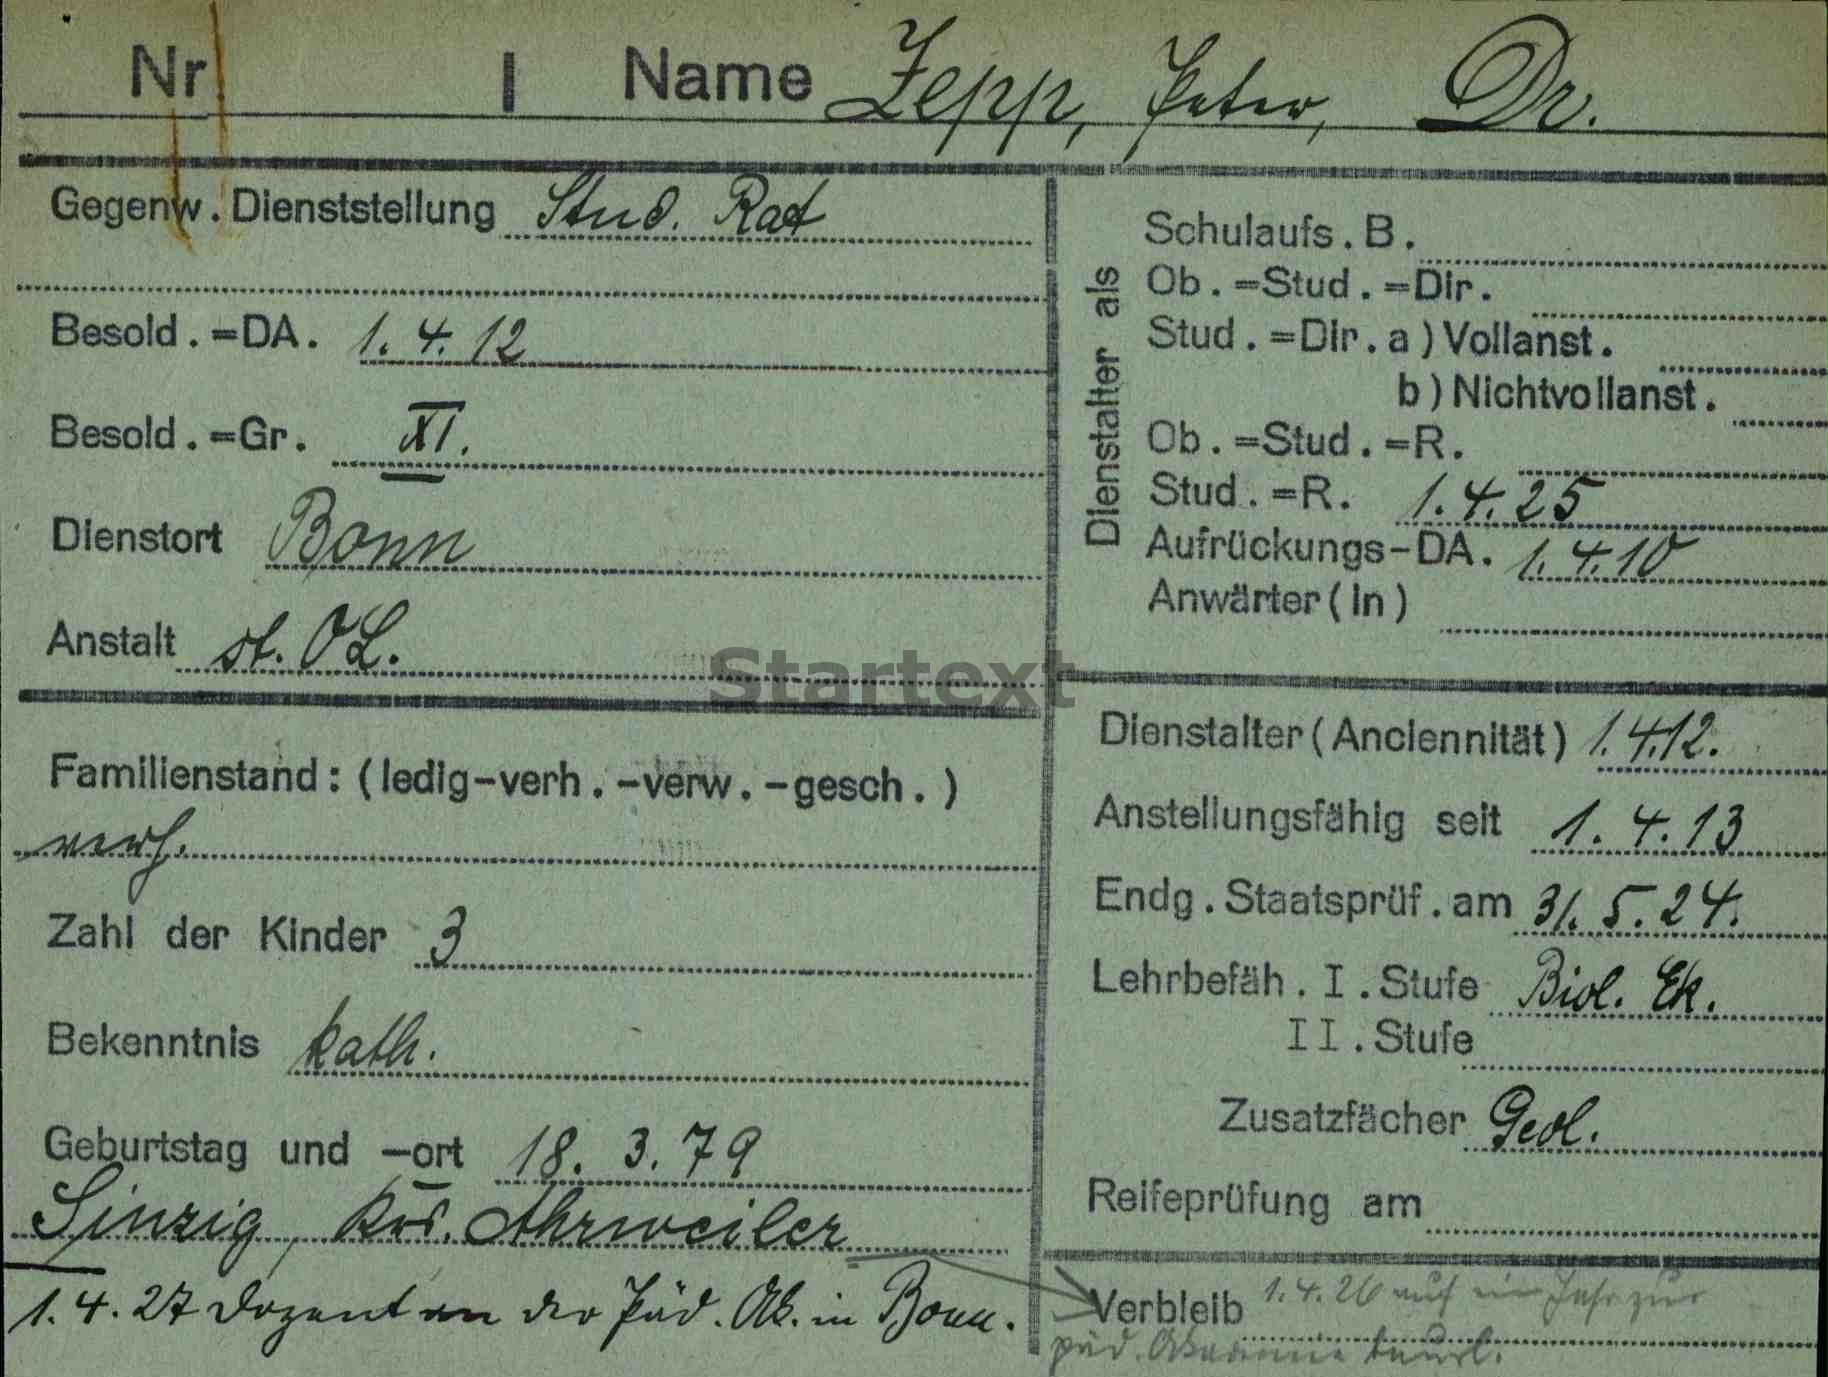 Nr I Name Zepp, Peter, Dr.
Gegenw. Dienststellung Stud. Rat
Besold.=DA. 1.4.12
Besold.=Gr. XI.
Dienstort Bonn
Anstalt st. OL.
Familienstand: (ledig-verh.-verw.-gesch.)
verh.
Zahl der Kinder 3
Bekenntnis kath.
Geburtstag und -ort 18. 3. 79
Sinzig, Krs. Ahrweiler
1.4.27 Dozent an der Päd. Ak. in Bonn.
Dienstalter als
Schulaufs. B.
Ob.=Stud.=Dir.
Stud.=Dir. a) Vollanst.
b) Nichtvollanst.
Ob.=Stud.=R.
Stud.=R. 1.4.25
Aufrückungs-DA. 1.4.10
Anwärter(in)
Startext
Dienstalter (Anciennität) 1.4.12.
Anstellungsfähig seit 1.4.13
Endg. Staatsprüf. am 31.5.24.
Lehrbefäh. I. Stufe Biol. Ek.
II. Stufe
Zusatzfächer Geol.
Reifeprüfung am
Verbleib 1.4.26 auf ein Jahr zur
päd. Akademie beurl.